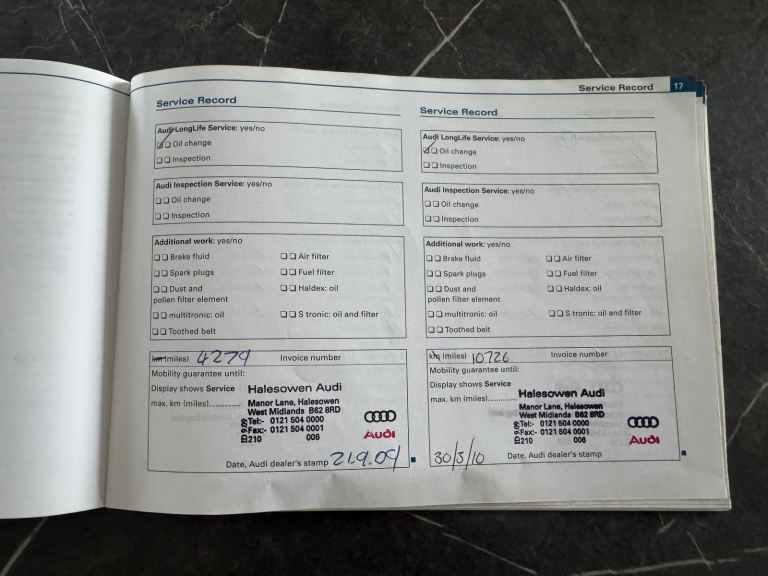 Service Record 17
Service Record
Audi LongLife Service: yes/no
Oil change
Inspection
Audi Inspection Service: yes/no
Oil change
Inspection
Additional work: yes/no
Brake fluid Air filter
Spark plugs Fuel filter
Dust and Haldex: oil
pollen filter element
multitronic: oil S tronic: oil and filter
Toothed belt
km (miles) 4279 Invoice number
Mobility guarantee until:
Display shows Service
max. km (miles)..............
Halesowen Audi
Manor Lane, Halesowen
West Midlands B62 8RD
Tel:- 0121 504 0000
Fax:- 0121 504 0001
210 006
Audi
Date, Audi dealer's stamp 21.9.09
Service Record
Audi LongLife Service: yes/no
Oil change
Inspection
Audi Inspection Service: yes/no
Oil change
Inspection
Additional work: yes/no
Brake fluid Air filter
Spark plugs Fuel filter
Dust and Haldex: oil
pollen filter element
multitronic: oil S tronic: oil and filter
Toothed belt
km (miles) 10726 Invoice number
Mobility guarantee until:
Display shows Service
max. km (miles)..............
Halesowen Audi
Manor Lane, Halesowen
West Midlands B62 8RD
Tel:- 0121 504 0000
Fax:- 0121 504 0001
210 006
Audi
30/3/10 Date, Audi dealer's stamp